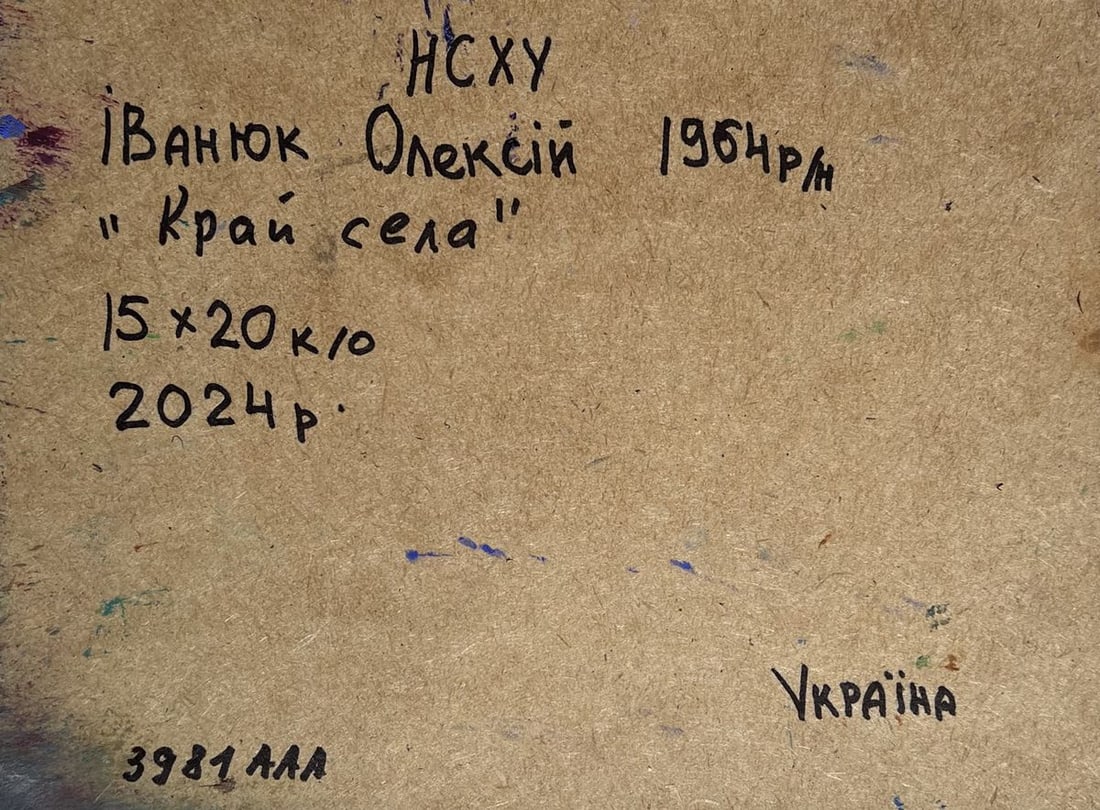 НСХУ
Іванюк Олексій 1964 р/н
"Край села"
15×20 к/о
2024 р.
Україна
3981 ААА